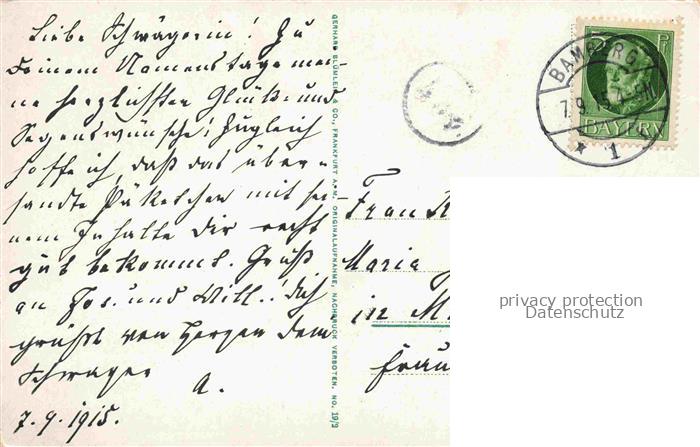 Liebe Schwägerin! Zu
Deinem Namenstage mei-
ne herzlichsten Glück- und
Segenswünsche! Zugleich
hoffe ich, daß das über-
sandte Päckchen mit sei-
nem Inhalte Dir recht
gut bekommt. Gruß
an Jos. und Will.! Dich
grüßt von Herzen Dein
Schwager
A.
7.9.1915.
GERHARD BLÜMLEIN & CO., FRANKFURT A. M. ORIGINALAUFNAHME. NACHDRUCK VERBOTEN. NO. 19/2
5 Pf
BAYERN
BAMBERG
1
Frau
Maria
in M
Frau
privacy protection
Datenschutz